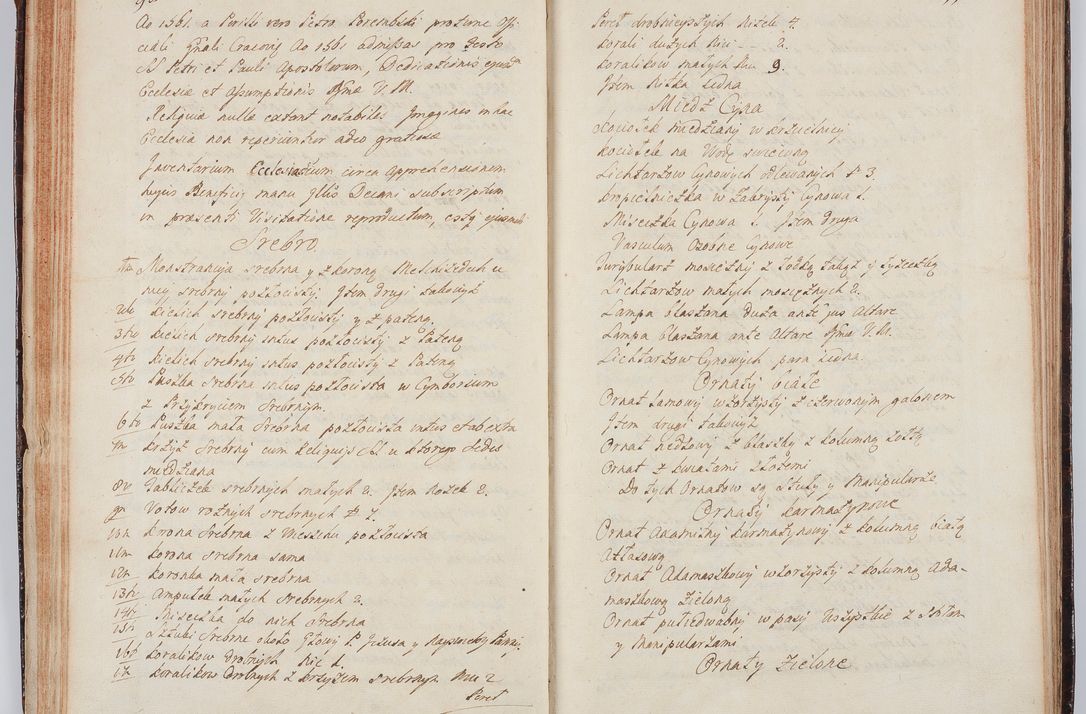 Ao 1561. a Perilli vero Petro Porembski proxime Offi-
ciali Gnali Cracoviẹ Ao 1561 admissas pro Festo
SS Petri et Pauli Apostolorum, Dedicationis ejusdem
Ecclesiæ et Assumptionis Bmæ V. M.
Reliquiæ nullæ extant notabiles Imagines in hac
Ecclesia non reperiuntur adeo gratiosæ
Inventarium Ecclesiasticum circa apprehensionem
hujus Beneficij manu Illris Decani subscriptum
in præsenti Visitatione reproductum, estq ejusmodi
Srebro.
1mo Monstrancyja srebrna y z koroną Melchizedech u
niej srebrny pozłocisty. Item drugi takowyż
2do Kielich srebrny pozłocisty y z pateną,
3tio Kielich srebrny intus pozłocisty z Pateną
4to Kielich srebrny intus pozłocisty z Pateną
5to Puszka Srebrna intus pozłocista w Cymborium
z Przykryciem Srebrnym.
6to Puszka mała Srebrna pozłocista intus et ab extra
7m Krzyż Srebrny cum Reliquijs SS. u którego Sedes
miedziana
8vo Tabliczek srebrnych małych 2. Item Nożek 2.
9n Votow rożnych srebrnych No 7.
10m Korona Srebrna z Wieszchu pozłocista
11m Korona srebrna sama
12m Koronka mała srebrna
13tio Ampułek małych srebrnych 2.
14to Miseczka do nich Srebrna
15to Sztuki Srebrne około Głowy P. Jezusa y Nayswiętszy Panny
16to Koralikow drobnych Nic 1.
17m Koralikow drobnych z krzyżem srebrnym Nici 2
Pereł
Pereł drobnieyszych Nitek 4.
Korali dużych Nici - - 2.
Koralikow małych Nici 9.
Item Nitka Jedna
Miedź Cyna
Kociołek miedziany w krzcielnicy
Kociołek na Wodę swięconą
Lichtarzow Cynowych odlewanych No 3.
Kropielniczka w Zakrystij Cynowa 1.
Miseczka Cynowa 1. Item druga
Vasculum Ozobne Cynowe
Turybularz mosiężny z łodką takąż y łyżeczką
Lichtarzow małych mosiężnych 2.
Lampa blaszana Duża ante jus Altare
Lampa Blaszana ante Altare Bmæ V. M.
Lichtarzow Cynowych para Jedna.
Ornaty białe
Ornat Lamowy wzorzysty z czerwonym galonem
Item drugi takowyż
Ornat z blaszky z kolumną żołtą
Ornat z kwiatami złotemi
Do tych Ornatow są Stuły y Manipularze
Ornaty Karmazynowe
Ornat Axamitny karmazynowy z kolumną białą
Atłasową
Ornat Adamaszkowy wzorzysty z kolumną Ada-
maszkową Zieloną
Ornat w pasy Wszystkie z Stułam
y Manipularzami
Ornaty Zielone